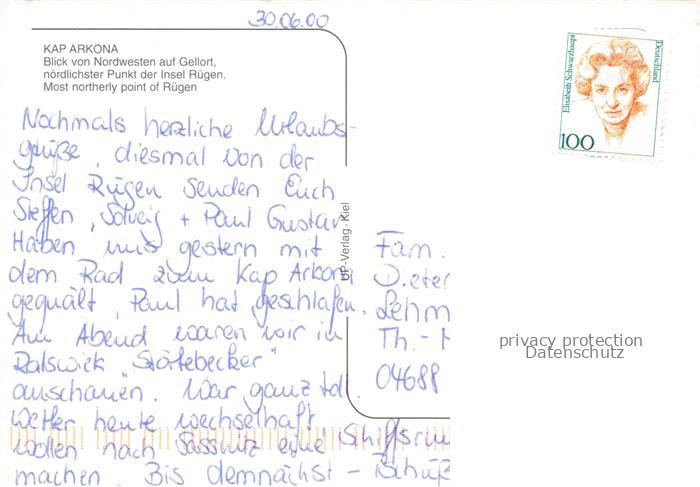 30.06.00
KAP ARKONA
Blick von Nordwesten auf Gellort,
nördlichster Punkt der Insel Rügen.
Most northerly point of Rügen
Nochmals herzliche Urlaubs-
grüße, diesmal von der
Insel Rügen senden Euch
Steffen, Solveig + Paul Gustav
Haben uns gestern mit
dem Rad zum Kap Arkona
gequält, Paul hat geschlafen.
Am Abend waren wir in
Ralswiek "Störtebecker"
anschauen. War ganz toll.
Wetter heute wechselhaft,
wollen nach Sassnitz eine Schiffsrun
machen. Bis demnächst – Tschüß
UP-Verlag · Kiel
Elisabeth Schwarzhaupt
Deutschland
100
Fam.
Dieter
Lehm
Th.-
04688
privacy protection
Datenschutz